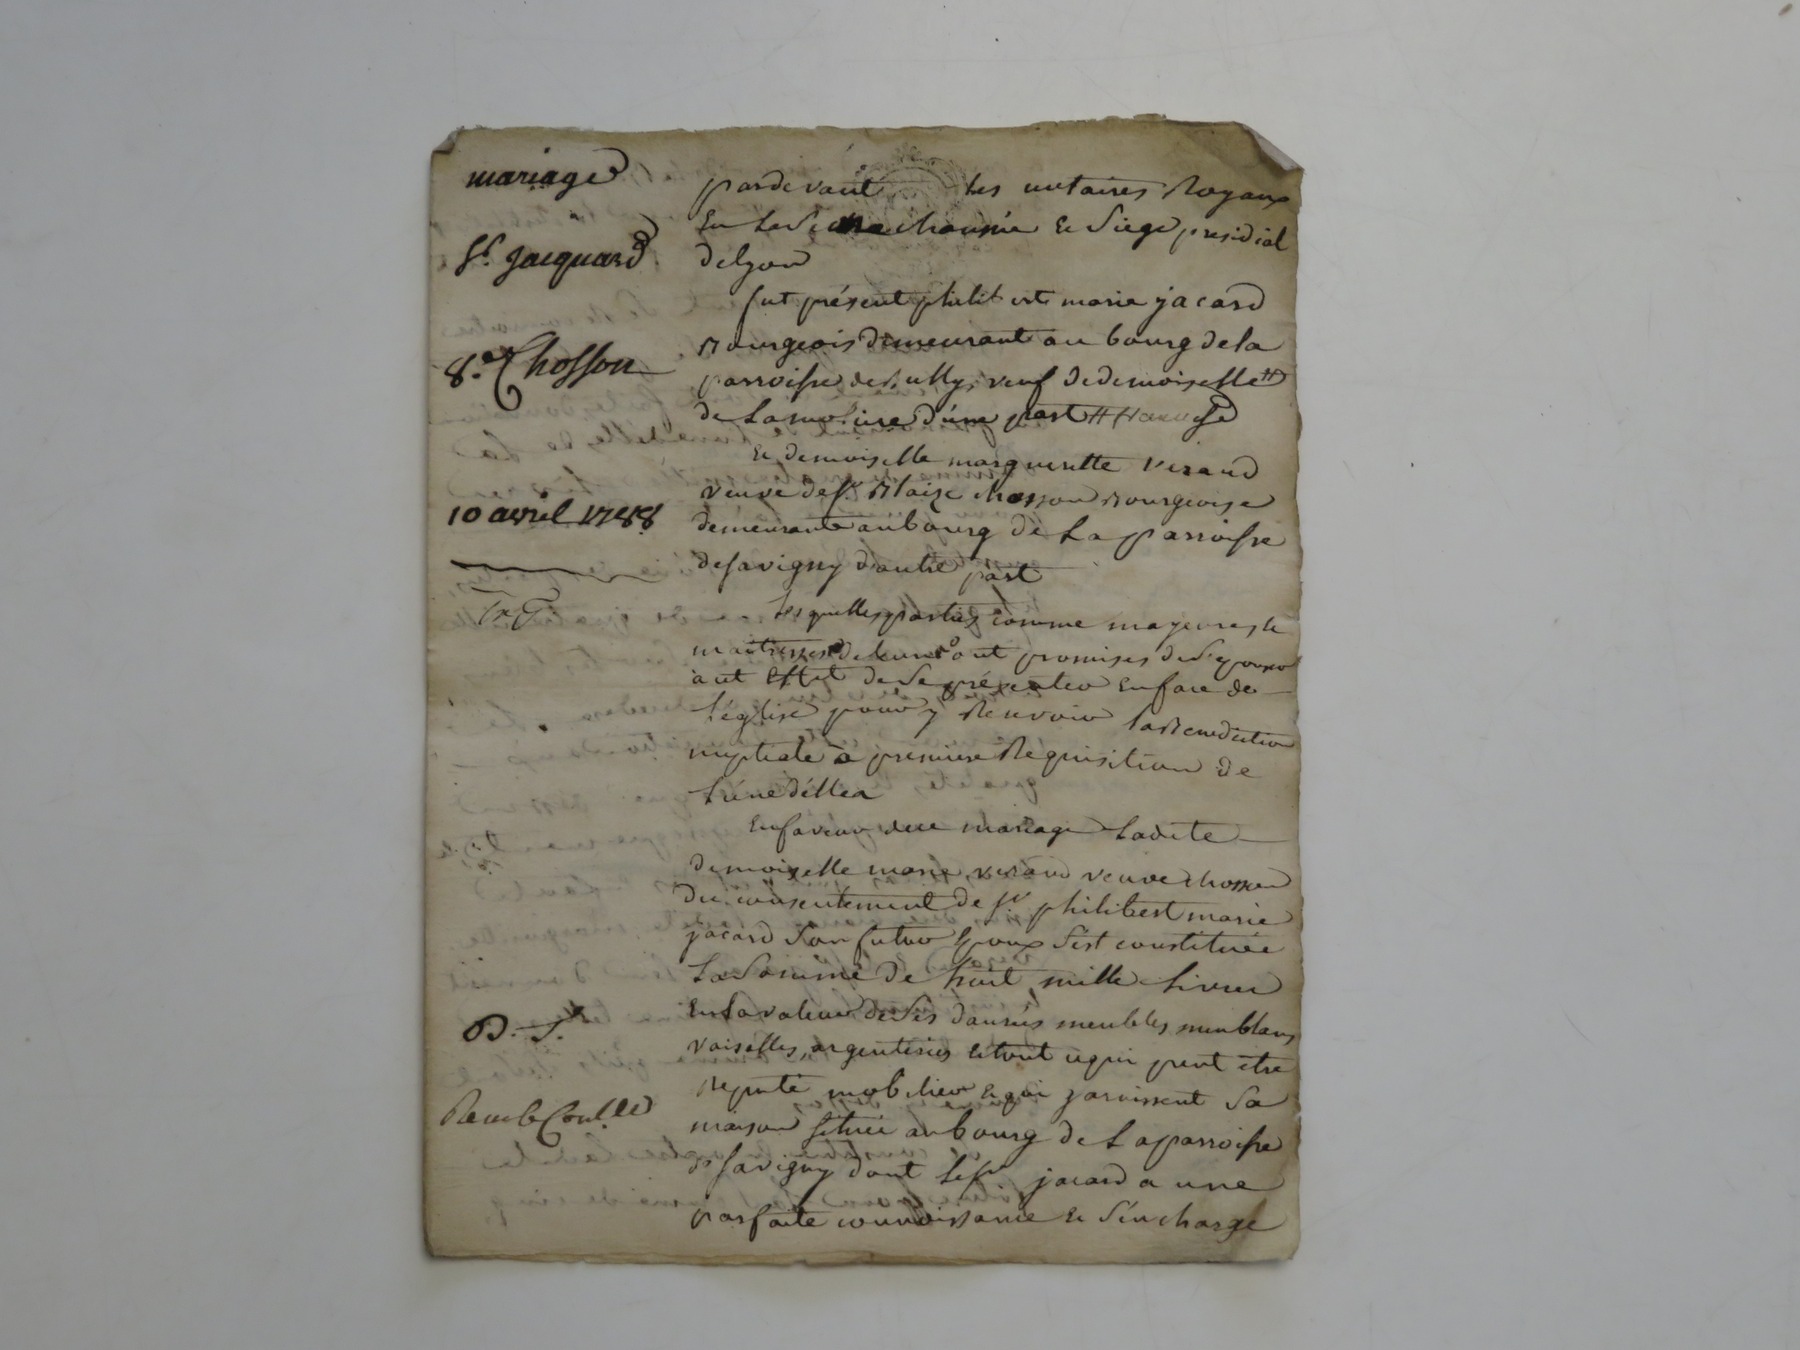 mariage
Sr. Jacquard
& Chosson
10 avril 1788
B. S.
pardevant les notaires Royaux
En La Senechaussée Et Siége presidial
de lyon
fut présent philibert marie jacard
Bourgeois demeurant au bourg de la
parroisse de veuf de demoiselle #
de Lamolire d'une part #
Et demoiselle margueritte veraud
veuve de sr. Blaize chosson Bourgeoise
demeurante au bourg de La parroisse
de savigny d'autre part
Lesquelles parties comme majeures &
maitresses de leurs ont promises de S'epouser
a cet Effet de Se présenter En face de
L'église pour y Recevoir la Benediction
nuptiale a premiere Requisition de
L'une d'elles
En faveur de ce mariage Ladite
demoiselle marie veraud veuve chosson
du consentement de sr. philibert marie
jacard Son futur Epoux S'est constituée
La Somme de huit mille Livres
En La valeur de Ses danrées meubles meublans
vaiselles, argenteries Et tout ce qui peut être
Reputé mobilier & qui garnissent Sa
maison située au bourg de La parroisse
de savigny dont Le sr. jacard a une
parfaite connoissance & S'en charge